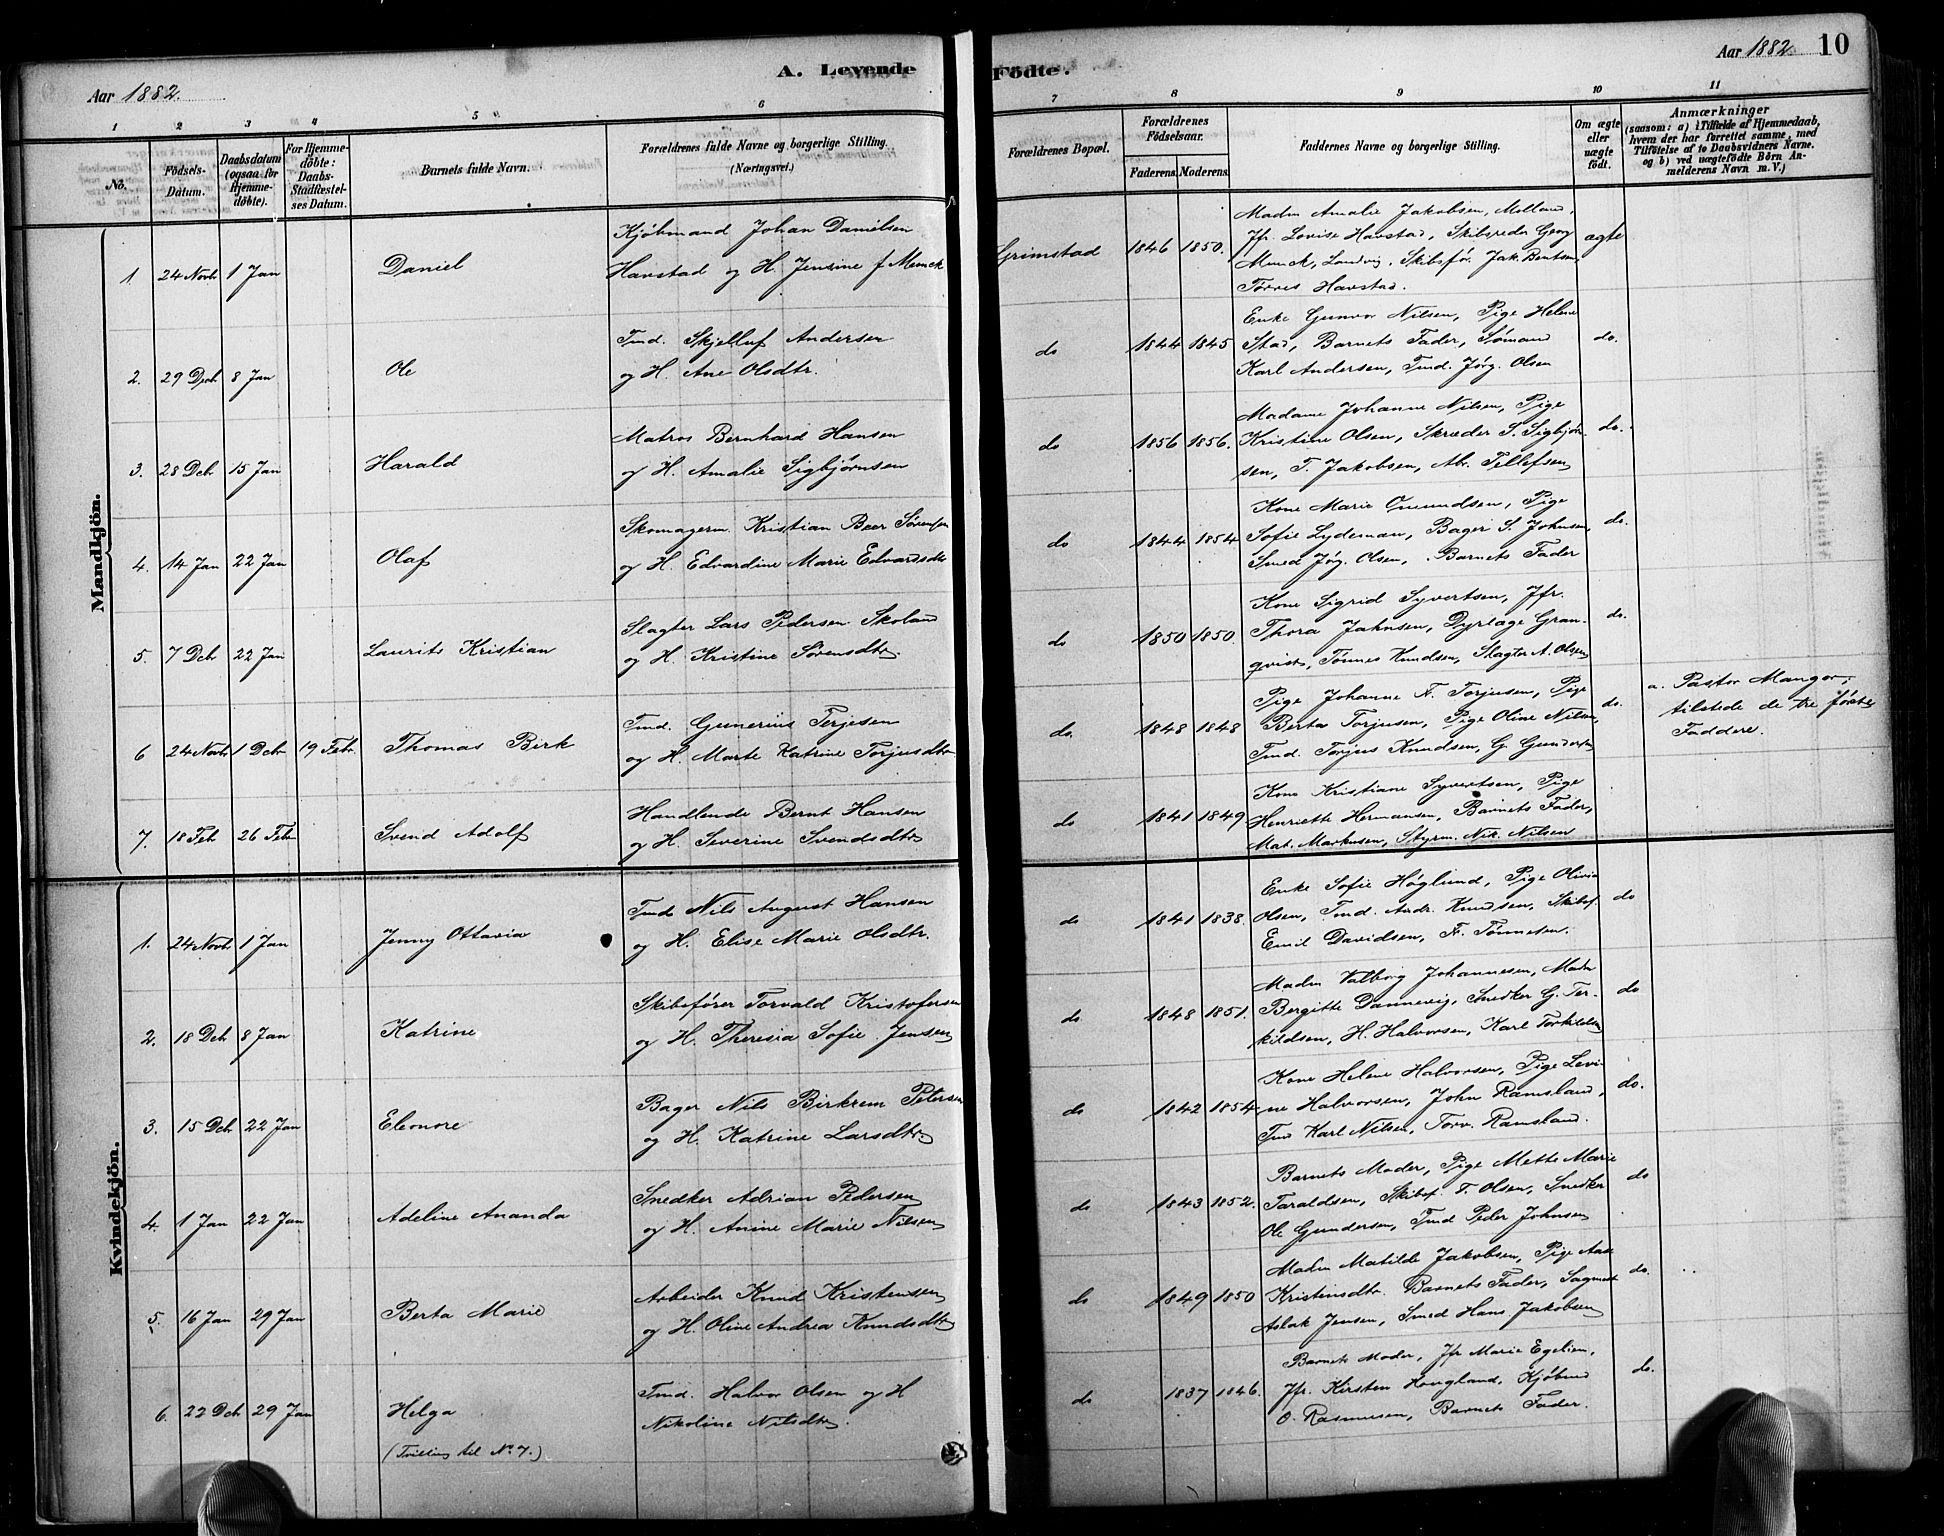 Aar 1882.
A. Levende Födte.
Aar 1882
10
1 2 3 4 5 6 7 8 9 10 11
No.
Födsels-Datum.
Daabsdatum (ogsaa for Hjemmedøbte).
For Hjemmedøbte: Daabs-Stadfæstelses Datum.
Barnets fulde Navn.
Forældrenes fulde Navne og borgerlige Stilling.
(Næringsvei.)
Forældrenes Bopæl.
Forældrenes Födselsaar.
Faderens. Moderens.
Faddernes Navne og borgerlige Stilling.
Om ægte eller uægte født.
Anmærkninger
(saasom: a) i Tilfælde af Hjemmedaab, hvem der har forrettet samme, med Tilføielse af to Daabsvidners Navne. og b) ved uægtefödte Börn Anmelderens Navn m. V.)
Mandkjön.
1. 24 Novbr 1 Jan Daniel
Kjøbmand Johan Danielsen
Havstad og H. Jensine f. Menck
Grimstad 1846 1850.
Madm Amalie Jakobsen, Molland,
Jfr. Lovise Havstad, Skibsreder Georg
Menck, Landvig, Skibsfør. Jak. Bentsen,
Tørres Havstad.
ægte
2. 29 Decb 8 Jan Ole
Tmd. Skjelluf Andersen
og H. Ane Olsdtr.
do 1844 1845
Enke Gunvor Nilsen, Pige Helene
Stad, Barnets Fader, Sømand
Karl Andersen, Tmd. Jørg. Olsen
do.
3. 28 Decb 15 Jan Harald
Matros Bernhard Hansen
og H. Amalie Sigbjørnsen
do 1856 1856.
Madame Johanne Nilsen, Pige
Kristine Olsen, Skræder S. Sigbjørn-
sen, T. Jakobsen, Ab. Tellefsen
do.
4. 14 Jan 22 Jan Olaf
Skomagerm Kristian Beer Sørensen
og H. Edvardine Marie Edvardsdtr
do 1844 1854
Kone Marie Gmundsen, Pige
Sofie Lydeman, Bager S. Johnsen,
Smed Jørg. Olsen, Barnets Fader
do.
5. 7 Decb 22 Jan Laurits Kristian
Slagter Lars Pedersen Skoland
og H. Kristine Sørensdtr.
do 1850 1850.
Kone Sigrid Syvertsen, Jfr.
Thora Jahnsen, Dyrlæge Gran-
qvist, Tønnes Knudsen, Slagter A. Olsen
do.
6 24 Novbr 1 Decb 19 Febr. Thomas Birk
Tmd. Gunerius Terjesen
og H. Marte Katrine Torjusdtr
do. 1848 1848
Pige Johanne F. Torjusen, Pige
Berta Torjusen, Pige Oline Nilsen,
Tmd. Torjus Knudsen, G. Gundersen
do.
a. Pastor Mangor,
tilstede de tre første
Faddere.
7. 18 Feb 26 Feb Svend Adolf
Handlende Bernt Hansen
og H. Severine Svendsdtr
do 1841 1849
Kone Kristiane Syvertsen, Pige
Henriette Hermansen, Barnets Fader,
Mat. Markusen, Styrm. Nik. Nilsen
Kvindekjön.
1. 24 Novbr 1 Jan Jenny Ottavia
Tmd Nils August Hansen
og H. Elise Marie Olsdtr.
do 1841 1838.
Enke Sofie Høglund, Pige Olivia
Olsen, Tmd. Andr. Knudsen, Skibsf.
Emil Davidsen, F. Tønnesen.
do
2. 18 Decb 8 Jan Katrine
Skibsfører Torvald Kristofersen
og H. Theresia Sofie Jensen
do 1848 1851.
Madm Valborg Johannesen, Madm
Bergitte Dannevig, Snedker G. Ter-
kildsen, H. Halvorsen, Karl Torkildsen
do
3. 15 Decb 22 Jan Eleonore
Bager Nils Birkrem Petersen
og H. Katrine Larsdtr
do 1842 1854
Kone Helene Halvorsen, Pige Levi-
ne Halvorsen, John Ramsland,
Tmd Karl Nilsen, Torv. Ramsland.
do.
4. 1 Jan 22 Jan Adeline Ananda
Snedker Adrian Pedersen
og H. Anine Marie Nilsen
do 1843 1852.
Barnets Moder, Pige Mette Marie
Taraldsen, Skibsf. T. Olsen, Snedker
Ole Gundersen, Tmd Peder Johnsen
do
5. 16 Jan 29 Jan Berta Marie
Arbeider Knud Kristensen
og H. Oline Andrea Knudsdtr
do 1849 1850
Madm Matilde Jakobsen, Pige Aase
Kristinsdtr. Barnets Fader, Sagmest
Aslak Jensen, Smed Hans Jakobsen
do.
6. 22 Decb 29 Jan Helga
(Tvilling til No 7.)
Tmd. Halvor Olsen og H
Nikoline Nilsdtr.
do 1837 1846.
Barnets Moder, Jfr Marie Egelien,
Jfr. Kirsten Hougland, Kjøbmd
O. Rasmusen, Barnets Fader.
do.